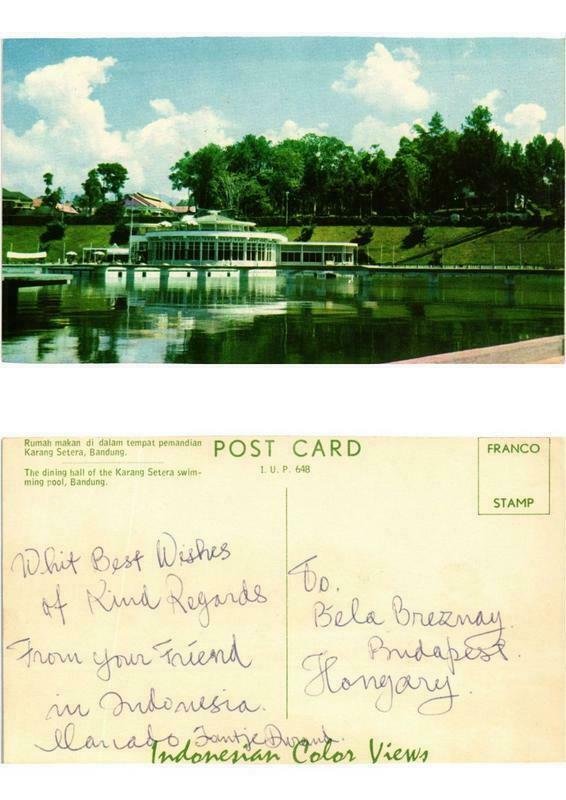 Rumah makan di dalam tempat pemandian
Karang Setera, Bandung.
The dining hall of the Karang Setera swim-
ming pool, Bandung.
POST CARD
I. U. P. 648
FRANCO
STAMP
Whit Best Wishes
of Kind Regards
From your Friend
in Indonesia.
Manado Fantje
To.
Bela Breznay.
Budapest.
Hongary.
Indonesian Color Views